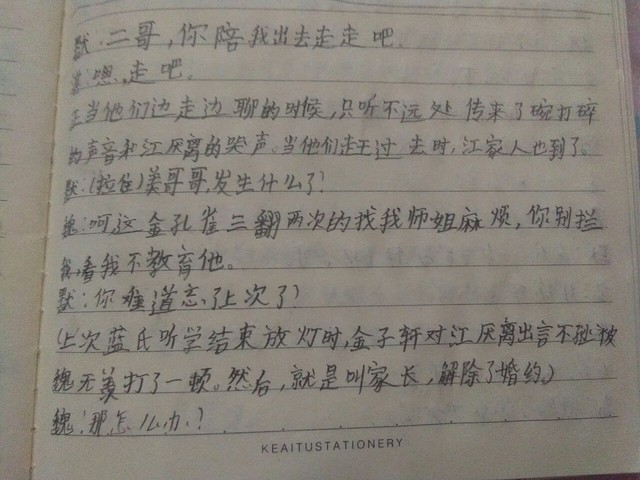 默:二哥,你陪我出去走走吧.
嗯,走吧.
正当他们边走边聊的时候,只听不远处传来了碗打碎
的声音和江厌离的哭声。当他们赶过去时,江家人也到了。
默:(拉住)羡哥哥,发生什么了?
魏:呵,这金孔雀三翻两次的找我师姐麻烦,你别拦
我,看我不教育他。
默:你难道忘了上次了?
(上次蓝氏听学结束放灯时,金子轩对江厌离出言不逊被
魏无羡打了一顿。然后,就是叫家长,解除了婚约。)
魏:那怎么办?
KEAITUSTATIONERY